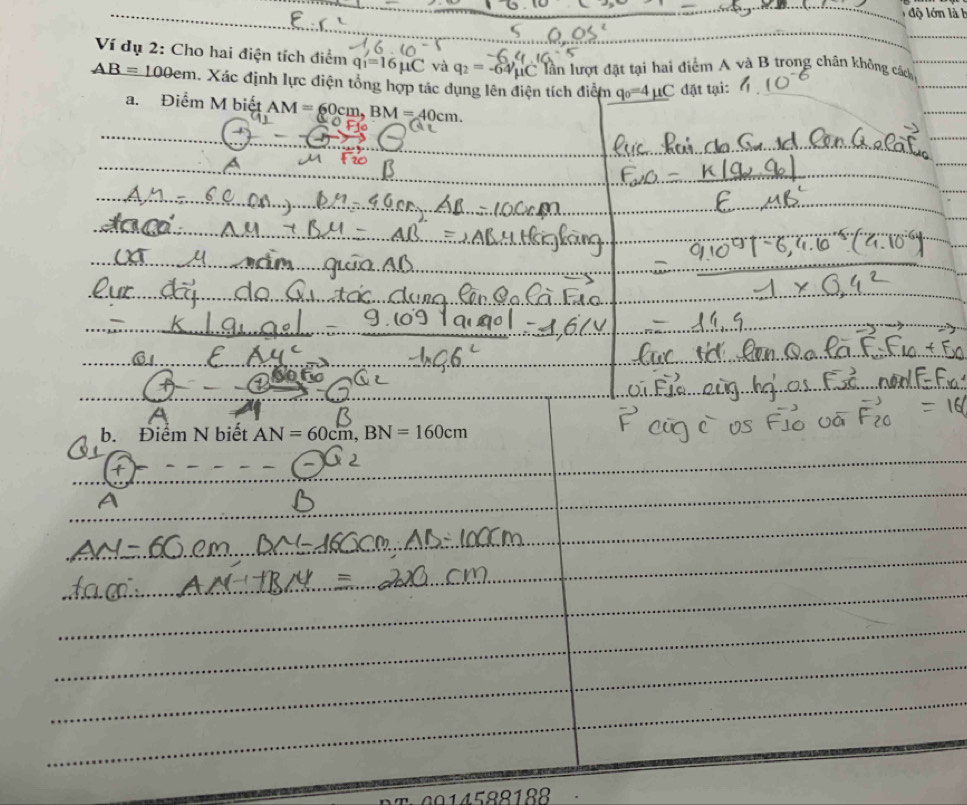 độ lớn là
E.r²
5 0,05²
Ví dụ 2: Cho hai điện tích điểm q₁=16 μC và q₂ = -64 μC lần lượt đặt tại hai điểm A và B trong chân không cách
16.10⁻⁵ -6,4.10⁻⁵
AB = 100cm. Xác định lực điện tổng hợp tác dụng lên điện tích điểm q₀=4 μC đặt tại: 4.10⁻⁶
a. Điểm M biết AM = 60cm, BM = 40cm.
q₁ Q0 F10 Q2
A M F20 B
AM = 60 cm, BM = 40cm, AB = 100cm
ta có: AM + BM = AB => ABM thẳng hàng
M nằm giữa AB
Lực đẩy do Q1 tác dụng lên Q0 là F10
= K |q1.q0| = 9.10⁹ |q1.q0| = 1,6(N)
E AM² 1.0,6²
Q1 Q0 F20 Q2
A M B
F20 = K|q2.q0|
E MB²
= 9.10⁹ |-6,4.10⁻⁵(4.10⁻⁶)|
1 x 0,4²
= 14,4
lực td lên Q0 là F=F10 + F20
vì F10 cùng F20 nên F=F10+
F cùng F10 và F20 = 16
b. Điểm N biết AN = 60cm, BN = 160cm
Q1 + - - - - - - - Q2
A B
AN = 60 cm, BN = 160cm, AB = 100cm
ta có: AN + BN = 220 cm
0914588188